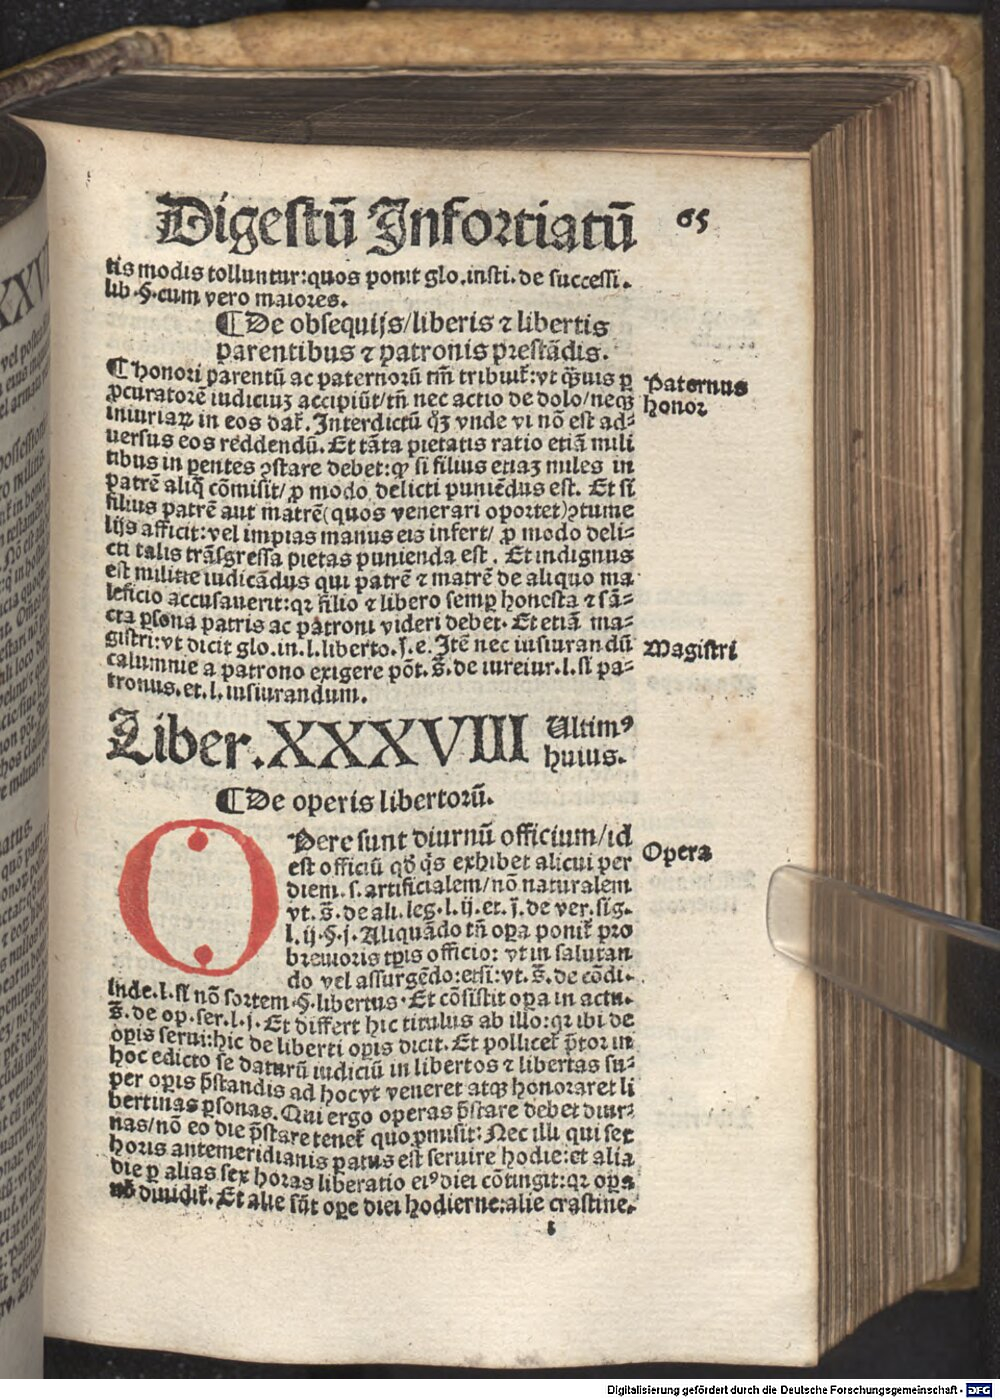 Digestū Infortiatū 65
tis modis tolluntur:quos ponit glo.insti.de successi.
lib.§.cum vero maiores.
¶De obsequijs/liberis ⁊ libertis
parentibus ⁊ patronis prestādis.
¶Honori parentū ac paternorū tm̄ tribuiť:vt q̄uis ꝑ
Paternus
honor
ꝓcuratorē iudiciuȝ accipiūt/tn̄ nec actio de dolo/neqȝ
iniuriaꝝ in eos dať.Interdictū qȝ vnde vi nō est ad⸗
uersus eos reddendū.Et tāta pietatis ratio etiā mili
tibus in ꝑentes ꝯstare debet:ꝙ si filius etiaȝ miles in
patrē aliq̄ cōmisit/ꝓ modo delicti puniēdus est. Et si
filius patrē aut matrē(quos venerari oportet)ꝯtume
lijs afficit:vel impias manus eis infert/ ꝓ modo deli⸗
cti talis trāsgressa pietas punienda est. Et indignus
est militie iudicādus qui patrē ⁊ matrē de aliquo ma
leficio accusauerit:qꝛ filio ⁊ libero semꝑ honesta ⁊ sā⸗
cta ꝑsona patris ac patroni videri debet. Et etiā ma⸗
gistri:vt dicit glo.in.l.liberto.j.e.Itē nec iusiurandū
Magistri
calumnie a patrono exigere pōt.s̄.de iureiur.l.si pa⸗
tronus.et.l.iusiurandum.
Liber.XXXVIII Ultimꝰ
huius.
¶De operis libertorū.
OPere sunt diurnū officium/id
Opera
est officiū qď q̄s exhibet alicui per
diem.s.artificialem/nō naturalem
vt.s̄.de ali.leg.l.ij.et.j̄.de ver.sig.
l.ij.§.j.Aliquādo tn̄ oꝑa poniť pro
breuioris tꝑis officio: vt in salutan
do vel assurgēdo:etsi:vt.s̄.de cōdi.
inde.l.si nō sortem.§.libertus.Et cōsistit oꝑa in actu.
s̄.de op.ser.l.j.Et differt hic titulus ab illo:qꝛ ibi de
oꝑis serui:hic de liberti oꝑis dicit.Et polliceť p̄tor in
hoc edicto se daturū iudiciū in libertos ⁊ libertas su⸗
per oꝑis p̄standis ad hocvt veneret atqȝ honoraret li
bertinas ꝑsonas.Qui ergo operas p̄stare debet diur⸗
nas/nō eo die p̄stare teneť quo ꝓmisit:Nec illi qui sex
horis antemeridianis paťus est seruire hodie:et alia
die ꝑ alias sex horas liberatio eiꝰdiei cōtingit:qꝛ oꝑa
nō diuidiť.Et alie sūt oꝑe diei hodierne:alie crastine.
Digitalisierung gefördert durch die Deutsche Forschungsgemeinschaft - DFG